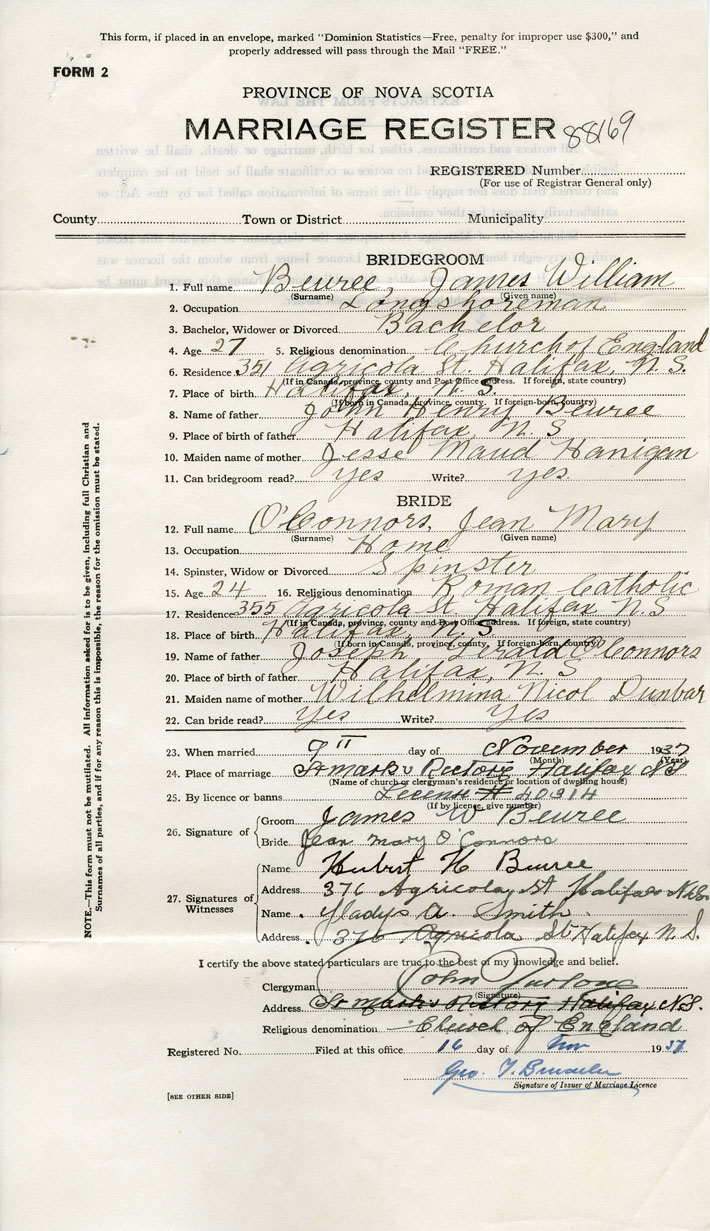 This form, if placed in an envelope, marked "Dominion Statistics—Free, penalty for improper use $300," and
properly addressed will pass through the Mail "FREE."
FORM 2
PROVINCE OF NOVA SCOTIA
MARRIAGE REGISTER 88169
REGISTERED Number
(For use of Registrar General only)
County Town or District Municipality
BRIDEGROOM
1. Full name Beuree, James William
(Surname) (Given name)
2. Occupation Longshoreman
3. Bachelor, Widower or Divorced Bachelor
4. Age 27 5. Religious denomination Church of England
6. Residence 351 Agricola St. Halifax, N.S.
(If in Canada, province, county and Post Office address. If foreign, state country)
7. Place of birth Halifax, N.S.
(If born in Canada, province, county. If foreign-born, country)
8. Name of father John Henry Beuree
9. Place of birth of father Halifax, N.S
10. Maiden name of mother Jesse Maud Hanigan
11. Can bridegroom read? yes Write? yes.
BRIDE
12. Full name O'Connors, Jean Mary
(Surname) (Given name)
13. Occupation Home
14. Spinster, Widow or Divorced Spinster
15. Age 24 16. Religious denomination Roman Catholic
17. Residence 355 Agricola St Halifax N.S
(If in Canada, province, county and Post Office address. If foreign, state country)
18. Place of birth Halifax, N.S
(If born in Canada, province, county. If foreign-born, country)
19. Name of father Joseph Gerald O'Connors
20. Place of birth of father Halifax, N.S
21. Maiden name of mother Wilhelmina Nicol Dunbar
22. Can bride read? Yes Write? Yes
23. When married 9" day of November 1937
(Month) (Year)
24. Place of marriage St marks Rectory Halifax N.S
(Name of church or clergyman's residence or location of dwelling house)
25. By licence or banns License # 40914
(If by licence, give number)
26. Signature of Groom James W Beuree
Bride Jean Mary O'Connors
27. Signatures of Witnesses
Name Hubert H Beuree
Address 376 Agricola St Halifax N.S.
Name Gladys A. Smith
Address 376 Agricola St Halifax N.S.
I certify the above stated particulars are true to the best of my knowledge and belief.
Clergyman John Furlong
(Signature)
Address St marks Rectory Halifax N.S.
Religious denomination Church of England
Registered No. Filed at this office 16 day of Nov 1937
Geo. T.
Signature of Issuer of Marriage Licence
[SEE OTHER SIDE]
NOTE.—This form must not be mutilated. All information asked for is to be given, including full Christian and
Surnames of all parties, and if for any reason this is impossible, the reason for the omission must be stated.